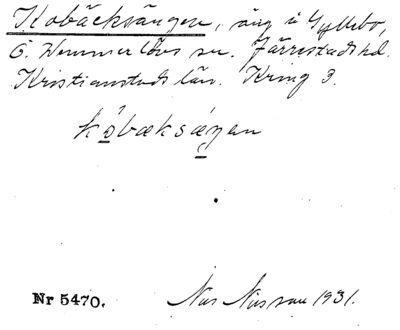 Kobäcksängen, äng i Gyllebo,
Ö. Vemmerlövs sn. Järrestads hd.
Kristianstads län. Kring 3.
kobæksæŋen
Nr 5470.
1931.